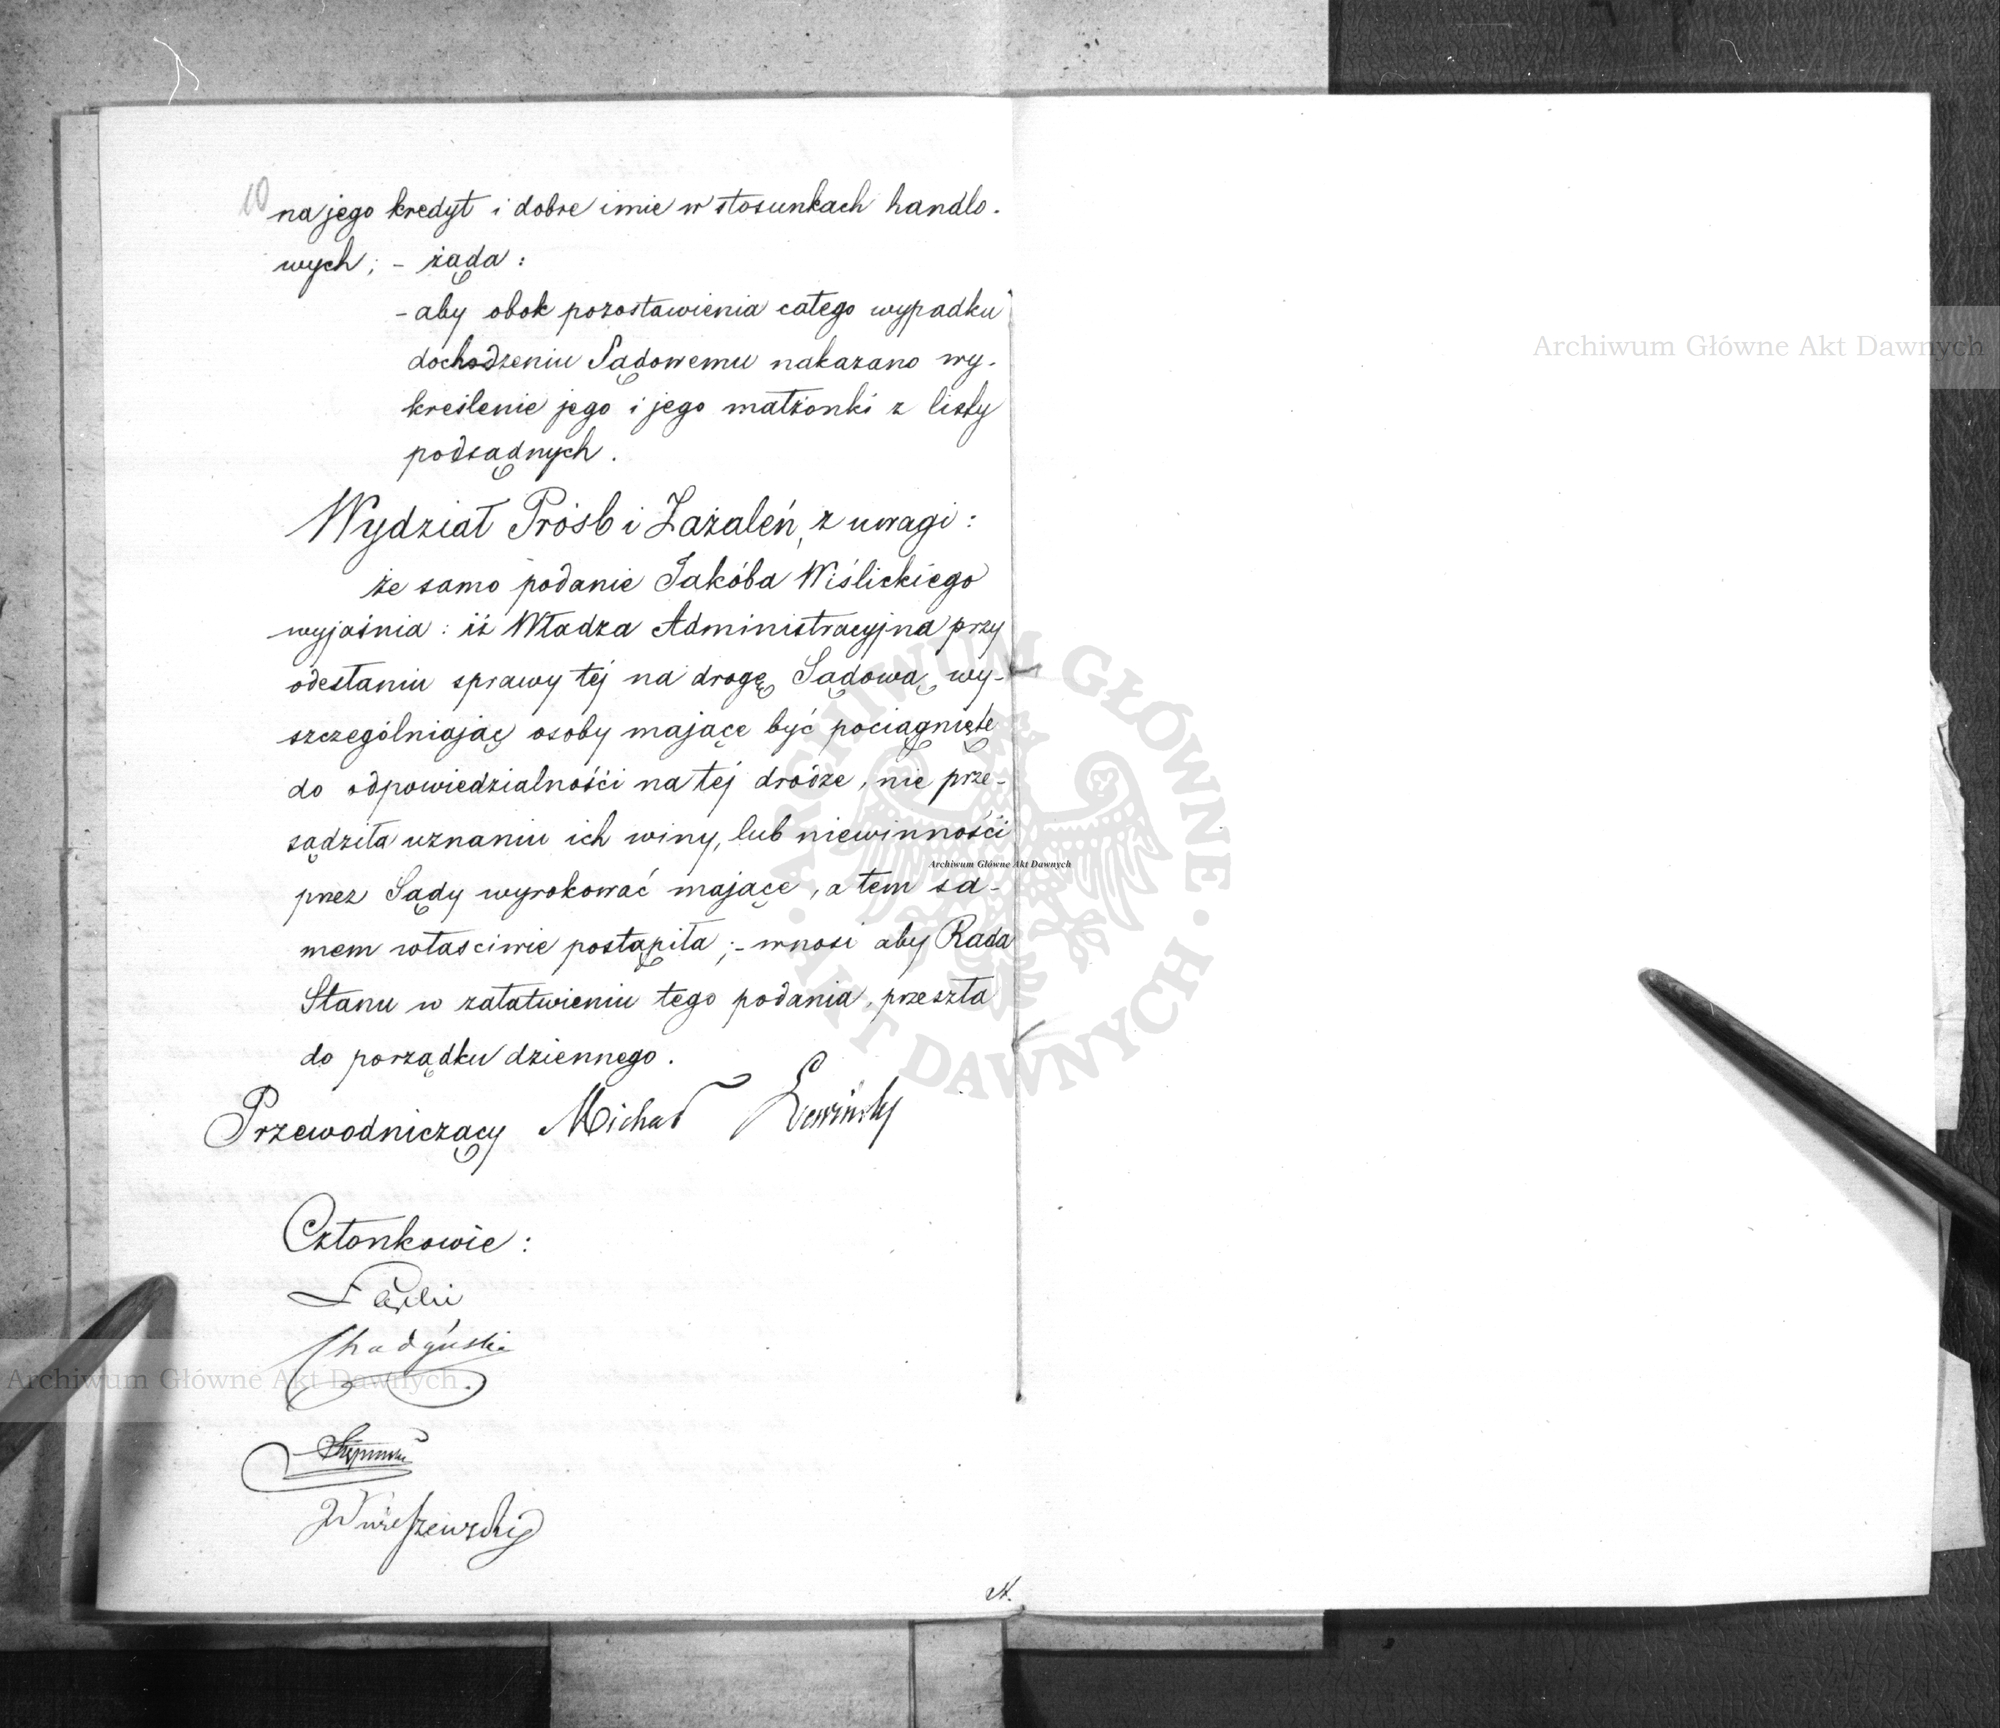 10
na jego kredyt i dobre imie w stosunkach handlo-
wych; - żąda:
- aby obok pozostawienia całego wypadku
dochodzeniu Sądowemu nakazano wy-
kreślenie jego i jego małżonki z listy
podsądnych.
Wydział Próśb i Zażaleń, z uwagi:
że samo podanie Jakóba Wiślickiego
wyjaśnia: iż Władza Administracyjna przy
odesłaniu sprawy téj na drogę Sądową wy-
szczególniając osoby mające być pociągnięte
do odpowiedzialności na téj drodze, nie prze-
sądziła uznaniu ich winy, lub niewinności
przez Sądy wyrokować mające, a tem sa-
mem właściwie postąpiła; - wnosi aby Rada
Stanu w załatwieniu tego podania, przeszła
do porządku dziennego.
Przewodniczący Michał Lewiński
Członkowie:
Wieszewski
N.
Archiwum Główne Akt Dawnych
Archiwum Główne Akt Dawnych
Archiwum Główne Akt Dawnych
ARCHIWUM GŁÓWNE
AKT DAWNYCH